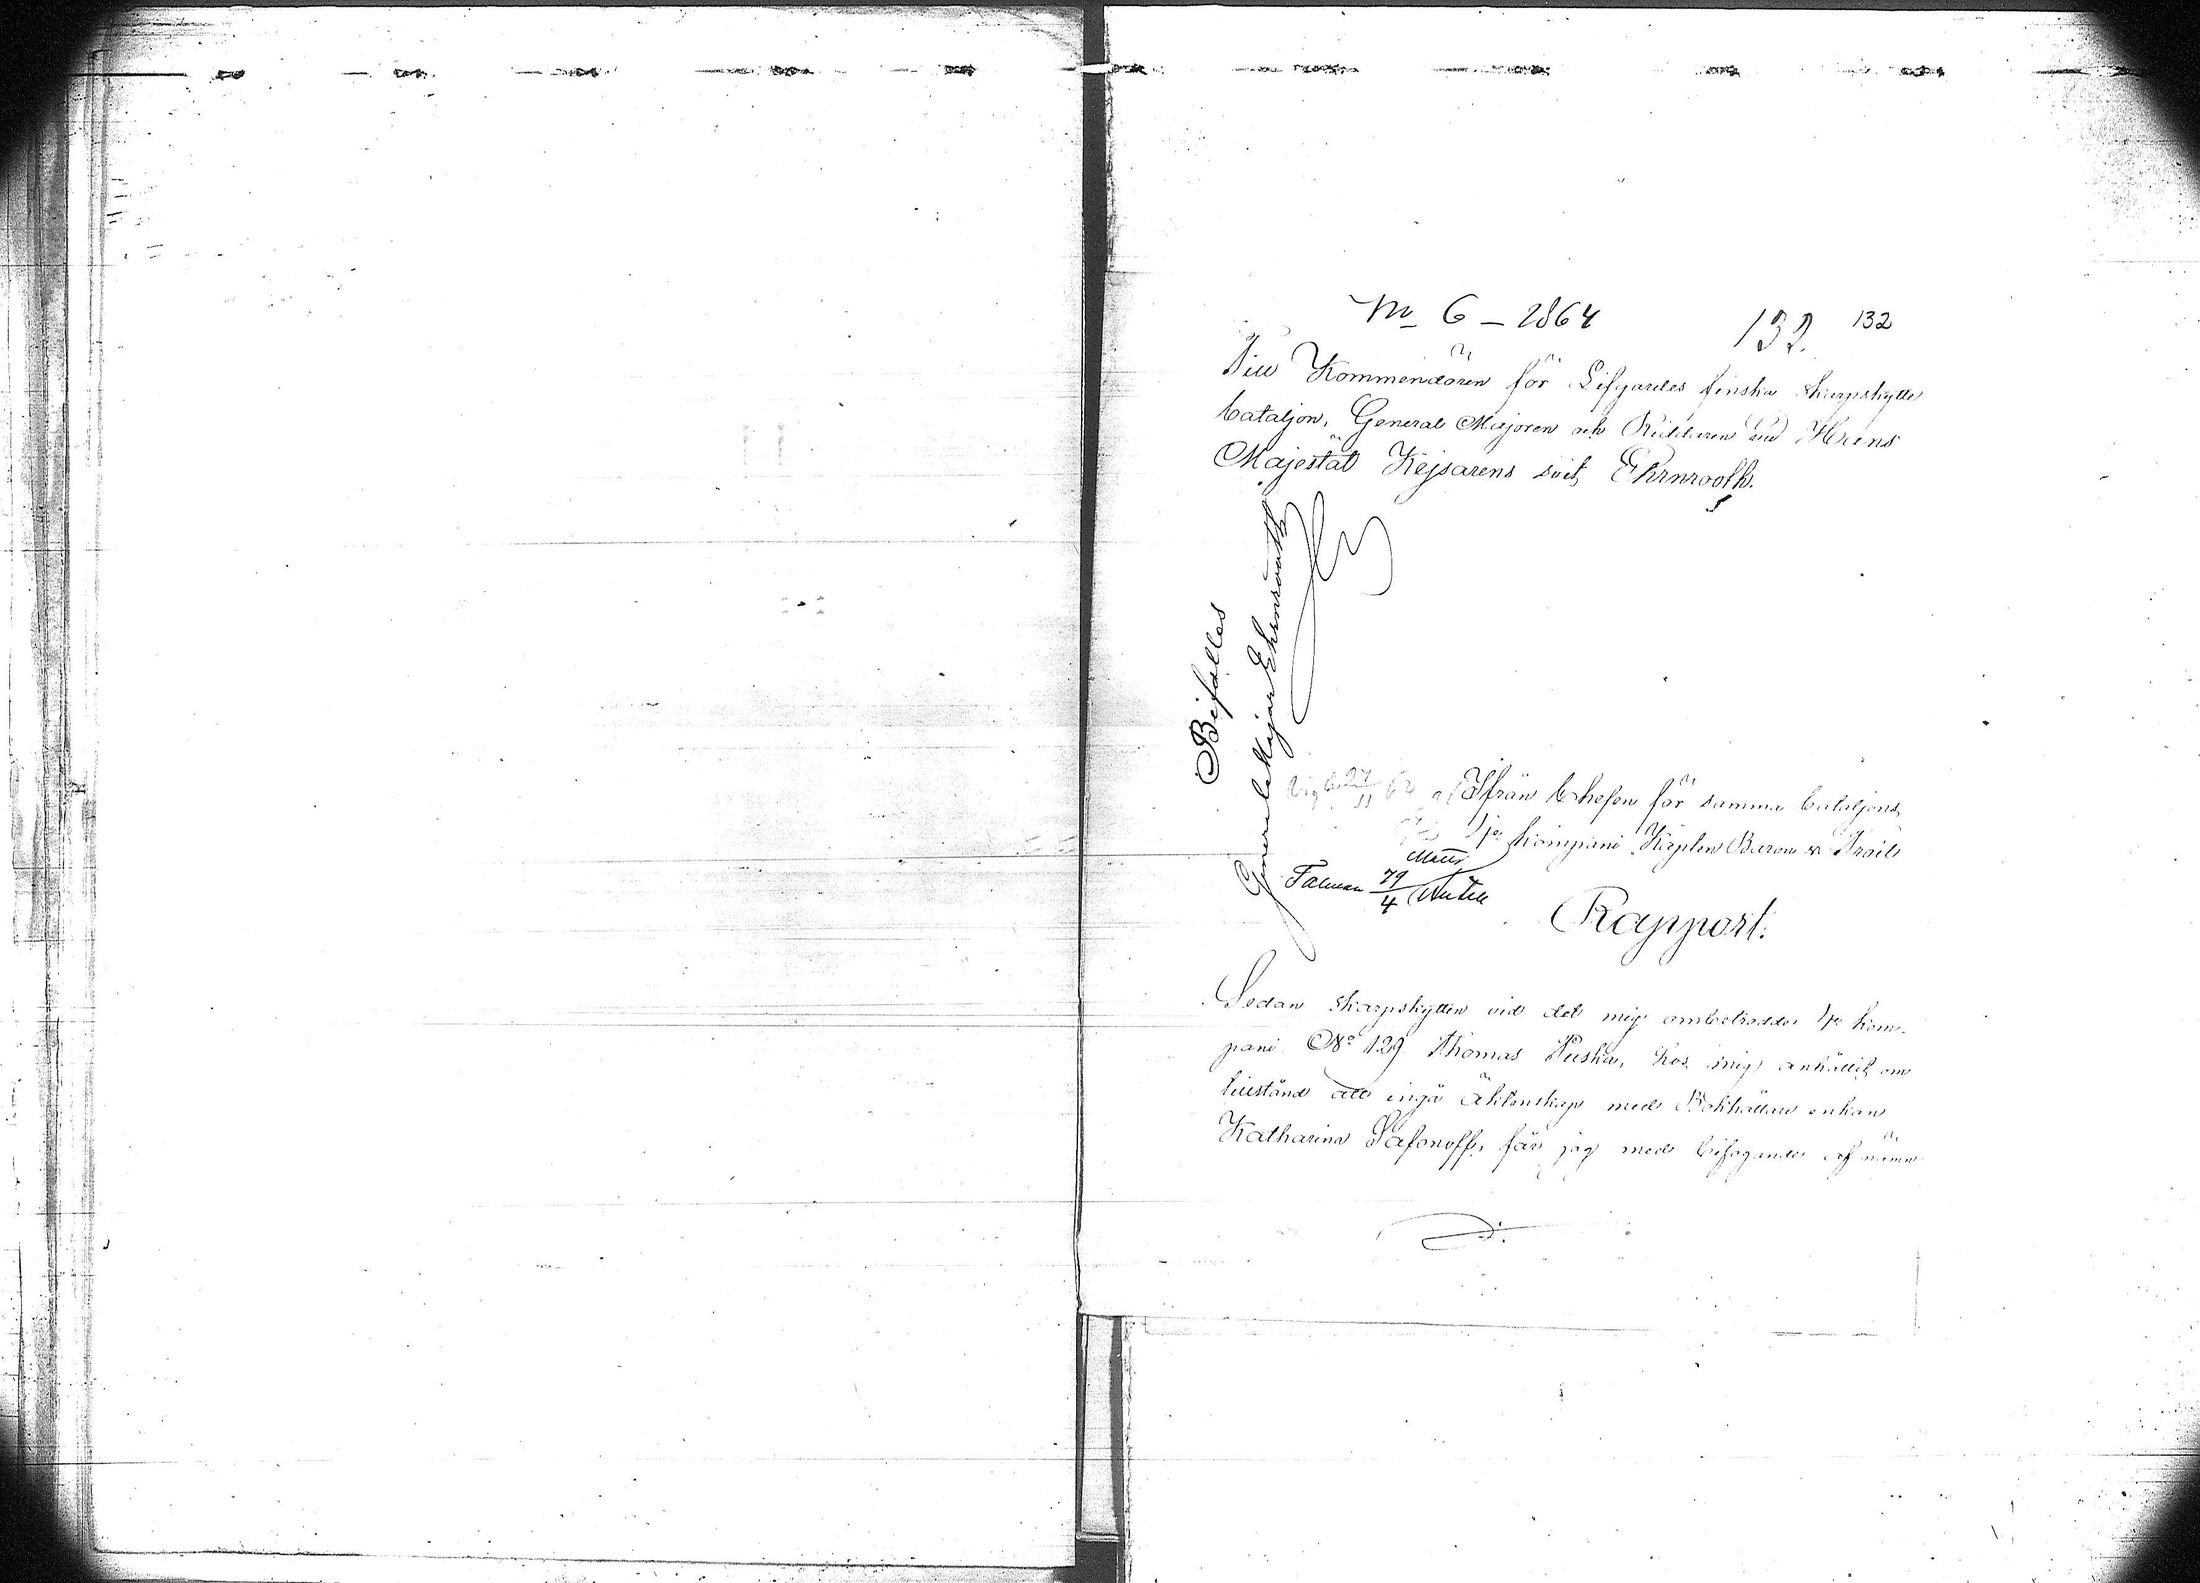 No 6 – 1864
132. 132
Till Kommendören för Lifgardes finska skarpskytte
bataljon, General Majoren och Riddaren vid Hans
Majestät Kejsarens svit, Ehrnrooth.
Bifalles
General Major Ehrnrooth
Ifrån Chefen för samma bataljons
1:a kompani Kapten Baron
79
4
Rapport.
Sedan skarpskytten vid det mig ombetrodde 1:a kom-
pani No 129 Thomas Puska, hos mig anhållit om
tillstånd att ingå äktenskap med Bokhållare enkan
Katharina Safonoff, får jag med bifogande af nämn